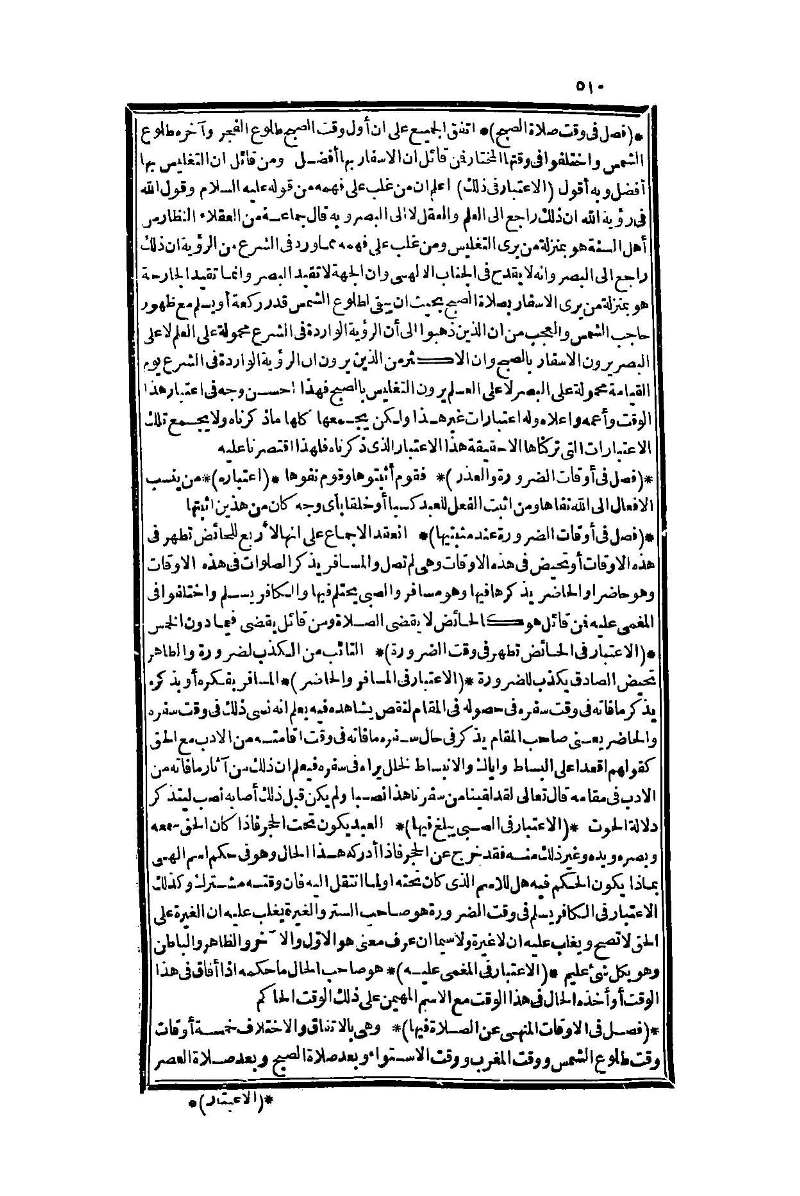 ٥١٠
*(فصل فى وقت صلاة الصبح)* اتفق الجميع على ان أول وقت الصبح طلوع الفجر وآخره طلوع
الشمس واختلفوا فى وقتها المختار فن قائل ان الاسفار بها أفضل ومن قائل ان التغليس بها
أفضل وبه أقول (الاعتبار فى ذلك) اعلم ان من غلب على فهمه من قوله عليه السلام وقول الله
فى رؤية الله ان ذلك راجع الى العلم والعقل لا الى البصر وبه قال جماعة من العقلاء النظار من
أهل السنة هو بمنزلة من يرى التغليس ومن غلب على فهمه مما ورد فى الشرع من الرؤية ان ذلك
راجع الى البصر وانه لا يقدح فى الجناب الالهى وان الجهة لا تقيد البصر وانما تقيد الجارحة
هو بمنزلة من يرى الاسفار بصلاة الصبح بحيث ان يبقى لطلوع الشمس قدر ركعة أو يسلم مع ظهور
حاجب الشمس والعجب من ان الذين ذهبوا الى أن الرؤية الواردة فى الشرع محمولة على العلم لا على
البصر يرون الاسفار بالصبح وان الاكثر من الذين يرون ان الرؤية الواردة فى الشرع يوم
القيامة محمولة على البصر لا على العلم يرون التغليس بالصبح فهذا احسن وجه فى اعتبار هذا
الوقت وأعمه واعلاه وله اعتبارات غير هذا ولكن يجمعها كلها ما ذكرناه ولا يجمع تلك
الاعتبارات التى تركناها الا حقيقة هذا الاعتبار الذى ذكرناه فلهذا اقتصرنا عليه
*(فصل فى أوقات الضرورة والعذر)* فقوم أثبتوها وقوم نفوها *(اعتباره)* من ينسب
الافعال الى الله نفاها ومن اثبت الفعل للعبد كسبا أو خلقا بأى وجه كان من هذين اثبتها
*(فصل فى أوقات الضرورة عند مثبتيها)* انعقد الاجماع على انها لأربع للحائض تطهر فى
هذه الاوقات أو تحيض فى هذه الاوقات وهى لم تصل والمسافر يذكر الصلوات فى هذه الاوقات
وهو حاضر او الحاضر يذكرها فيها وهو مسافر والصبى يحتلم فيها والكافر يسلم واختلفوا فى
المغمى عليه فن قائل هو كالحائض لا يقضى الصلاة ومن قائل يقضى فيما دون الخمس
*(الاعتبار فى الحائض تطهر فى وقت الضرورة)* التائب من الكذب لضرورة والطاهر
تحيض الصادق يكذب للضرورة *(الاعتبار فى المسافر والحاضر)* المسافر بفكره أو بذكره
يذكر ما فاته فى وقت سفره فى حصوله فى المقام لنقص يشاهده فيه يعلم انه نسى ذلك فى وقت سفره
والحاضر يعنى صاحب المقام يذكر فى حال سفره ما فاته فى وقت اقامته من الادب مع الحق
كقولهم اقعد على البساط واياك والانبساط لخلل يراه فى سفره فيعلم ان ذلك من آثار ما فاته من
الادب فى مقامه قال تعالى لقد لقينا من سفرنا هذا نصبا ولم يكن قبل ذلك أصابه نصب ليتذكر
دلالة الحوت *(الاعتبار فى الصبى يبلغ فيها)* العبد يكون تحت الحجر فاذا كان الحق سمعه
وبصره ويده وغير ذلك منه فقد خرج عن الحجر فاذا أدركه هذا الحال وهو فى حكم اسم الهى
بماذا يكون الحكم فيه هل للاسم الذى كان تحته او لما انتقل اليه فان وقته مشترك وكذلك
الاعتبار فى الكافر يسلم فى وقت الضرورة هو صاحب الستر والغيرة يغلب عليه ان الغيرة على
الحق لا تصح ويغلب عليه ان لا غيرة ولا سيما ان عرف معنى هو الاول والآخر والظاهر والباطن
وهو بكل شئ عليم *(الاعتبار فى المغمى عليه)* هو صاحب الحال ما حكمه اذا أفاق فى هذا
الوقت أو أخذه الحال فى هذا الوقت مع الاسم المهيمن على ذلك الوقت الحاكم
*(فصل فى الاوقات المنهى عن الصلاة فيها)* وهى بالاتفاق والاختلاف خمسة أوقات
وقت طلوع الشمس ووقت المغرب ووقت الاستواء وبعد صلاة الصبح وبعد صلاة العصر
*(الاعتبار)*